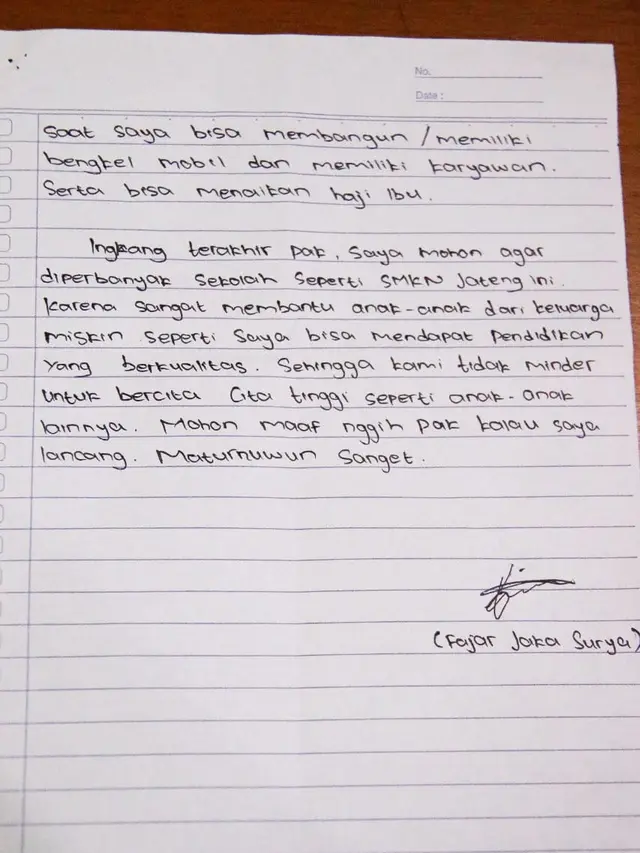 No.
Date :
saat saya bisa membangun / memiliki
bengkel mobil dan memiliki karyawan.
Serta bisa menaikan haji Ibu.
Ingkang terakhir pak, saya mohon agar
diperbanyak sekolah seperti SMKN Jateng ini.
Karena sangat membantu anak-anak dari keluarga
miskin seperti saya bisa mendapat pendidikan
yang berkualitas. Sehingga kami tidak minder
untuk bercita cita tinggi seperti anak-anak
lainnya. Mohon maaf nggih pak kalau saya
lancang. Maturnuwun sanget.
(Fajar Jaka Surya)